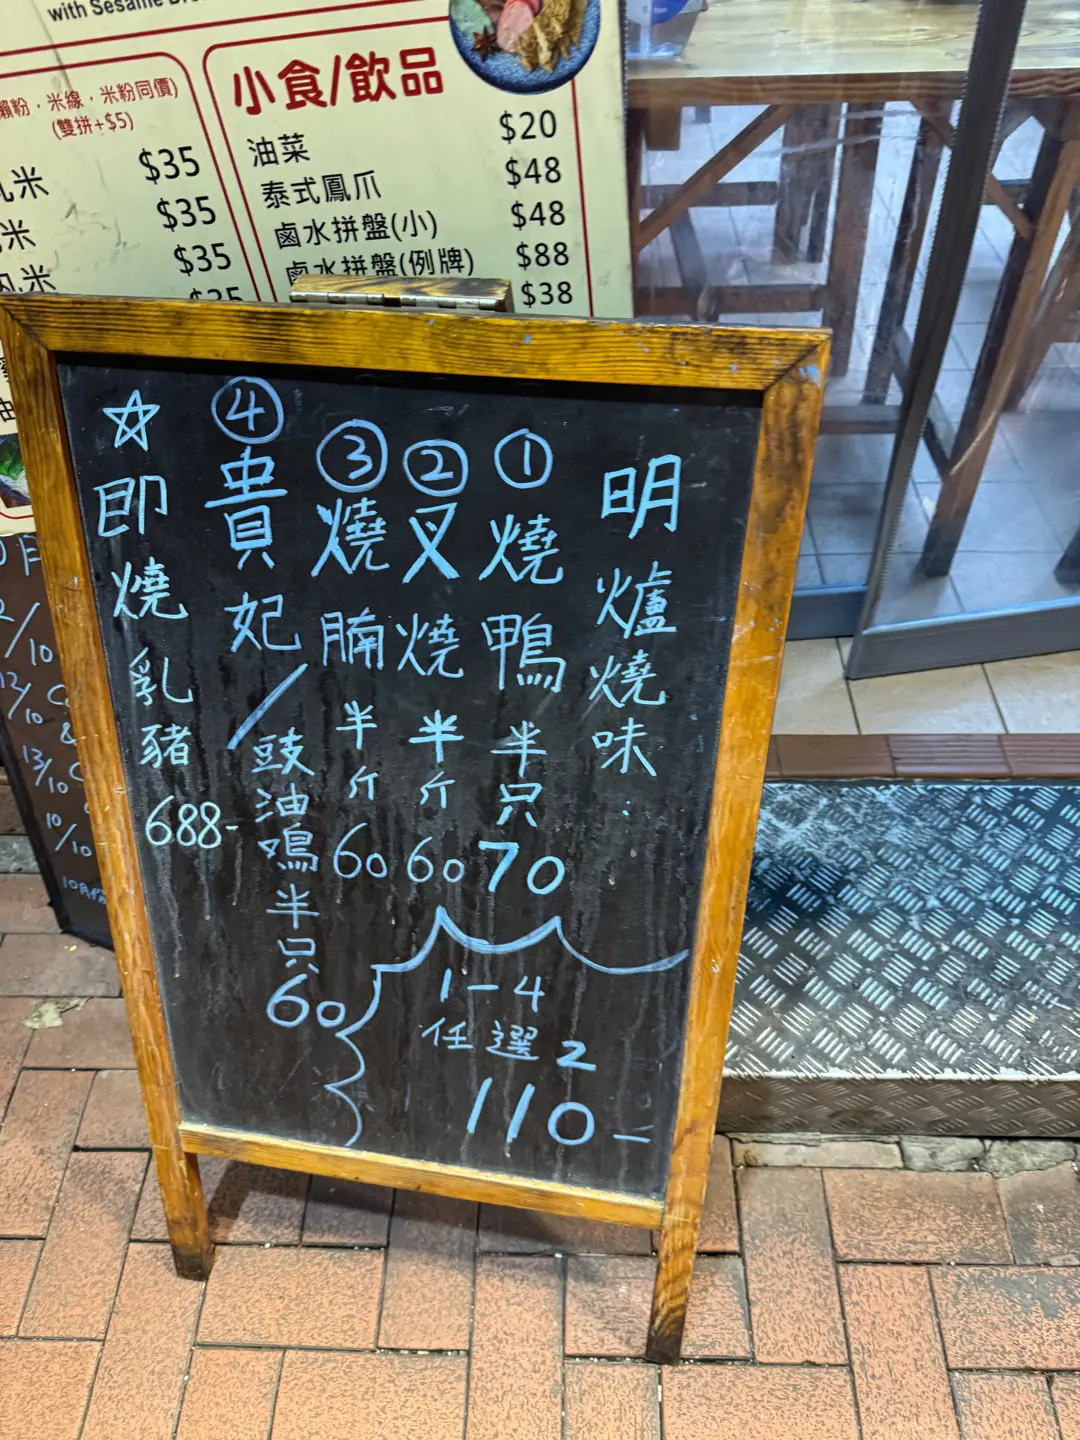 with Sesame
米線，米粉同價)
(雙拼+$5)
米 $35
米 $35
米 $35
小食/飲品
油菜 $20
泰式鳳爪 $48
鹵水拼盤(小) $48
鹵水拼盤(例牌) $88
$38
明爐燒味：
① 燒鴨半只 70
② 叉燒半斤 60
③ 燒腩半斤 60
④ 貴妃/豉油鳮半只 60
☆即燒乳豬 688-
1-4
任選2
110-
/10
12/10
13/10
10/10